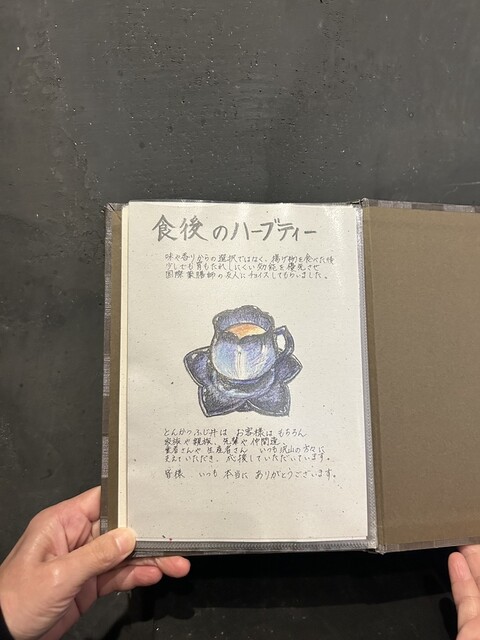 食後のハーブティー
味や香りからの選択ではなく、揚げ物を食べた後
少しでも胃もたれしにくい効能を優先させ
国際薬膳師の友人にチョイスしてもらいました。
とんかつふじ井は お客様はもちろん
家族や親族、先輩や仲間達
業者さんや生産者さん いつも沢山の方々に
支えていただき、応援していただいています。
皆様 いつも 本当に ありがとうございます。